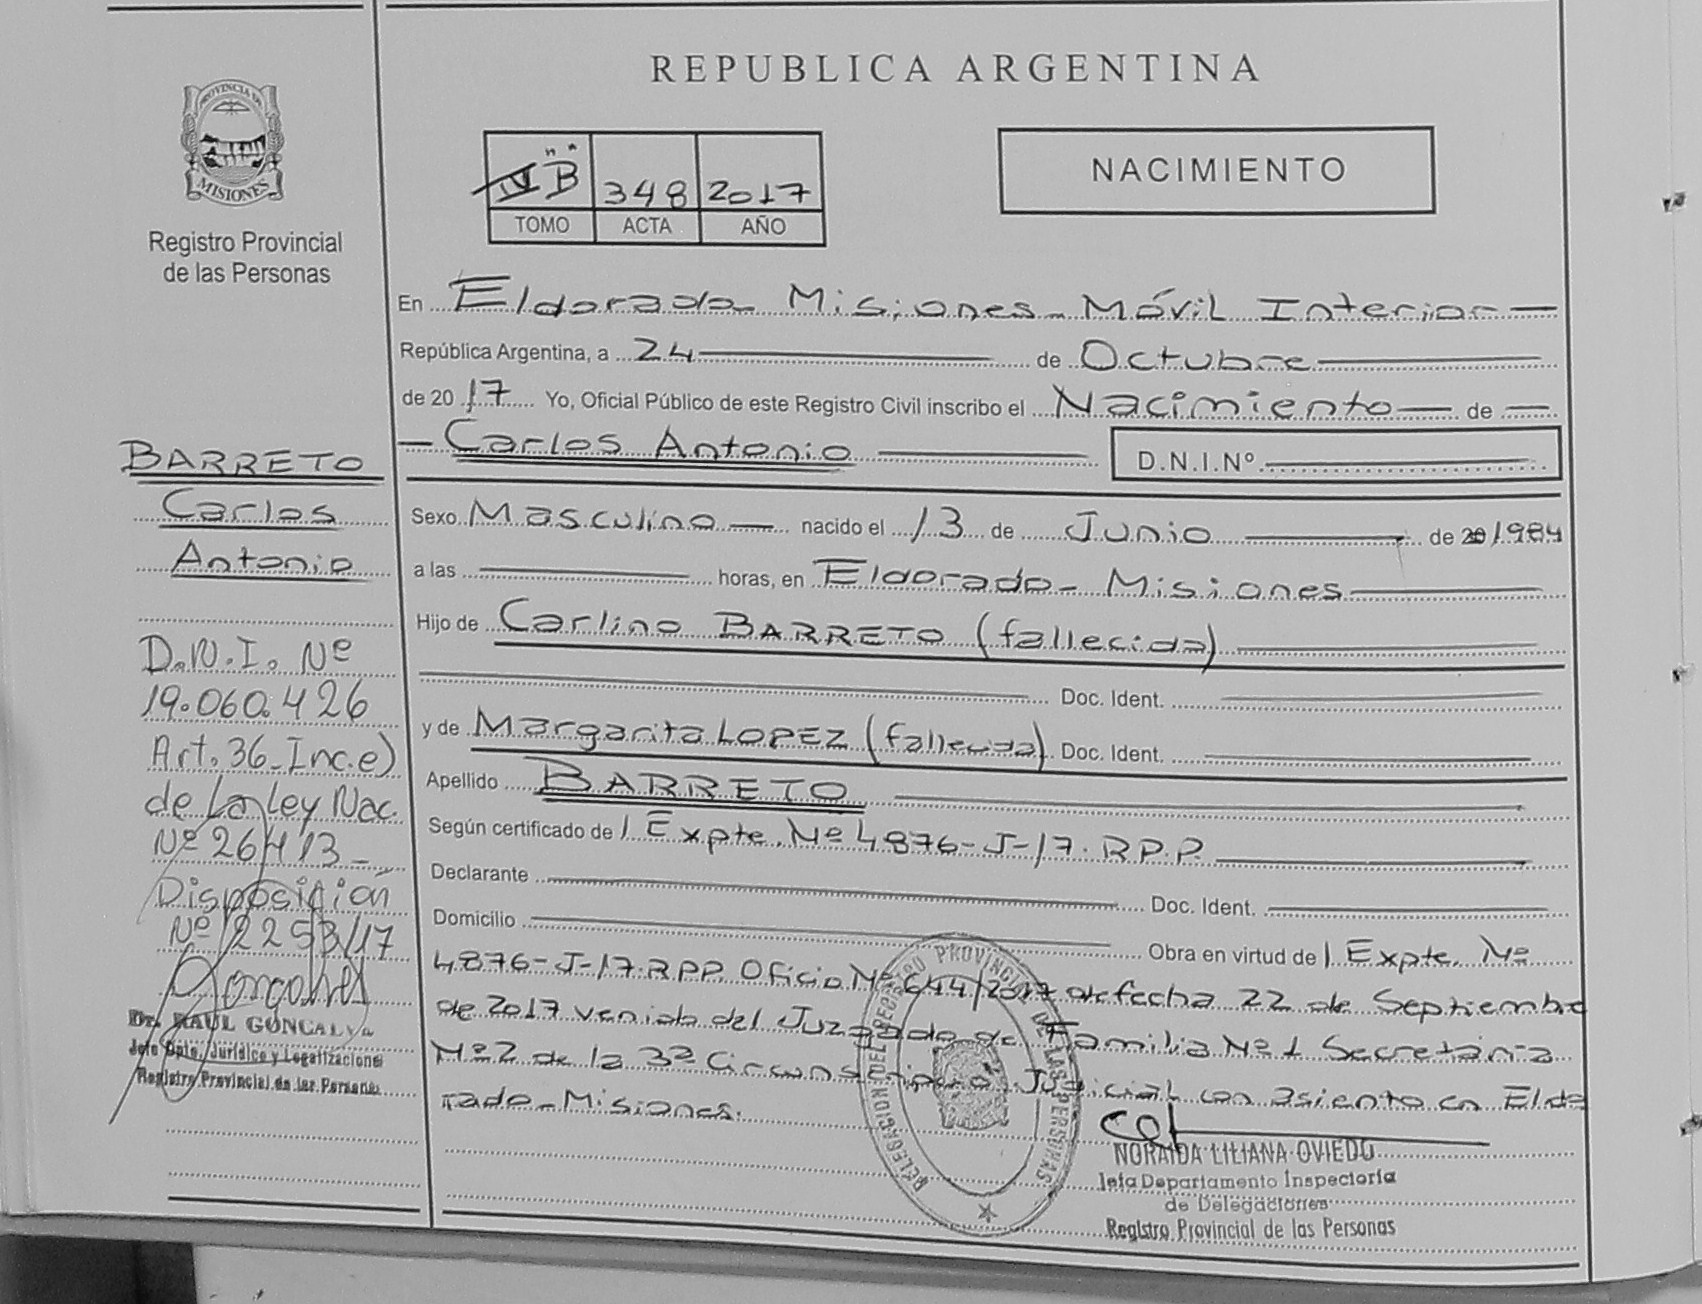 REPUBLICA ARGENTINA
PROVINCIA DE
MISIONES
Registro Provincial
de las Personas
IV "B" 348 2017
TOMO ACTA AÑO
NACIMIENTO
En Eldorado - Misiones - Móvil Interior
República Argentina, a 24 de Octubre
de 2017 Yo, Oficial Público de este Registro Civil inscribo el Nacimiento de
Carlos Antonio D.N.I.Nº
Sexo Masculino nacido el 13 de Junio de 20 1984
a las horas, en Eldorado - Misiones
Hijo de Carlino BARRETO (fallecido)
Doc. Ident.
y de Margarita LOPEZ (fallecida) Doc. Ident.
Apellido BARRETO
Según certificado de / Expte. Nº 4876-J-17. R.P.P.
Declarante Doc. Ident.
Domicilio Obra en virtud de / Expte. Nº
4876-J-17. RPP. Oficio Nº 644/2017 de fecha 22 de Septiembre
de 2017 venido del Juzgado de Familia Nº 1 Secretaría
Nº 2 de la 3ª Circunscripción Judicial con asiento en Eldo
rado - Misiones.
BARRETO
Carlos
Antonio
D.N.I. Nº
19.060.426
Art. 36 - Inc. e)
de La Ley Nac.
Nº 26413 -
Disposición
Nº 2253/17
Dr. RAUL GONCALVES
Jefe Dpto. Jurídico y Legalizaciones
Registro Provincial de las Personas
DELEGACION DEL REGISTRO PROVINCIAL DE LAS PERSONAS
NORAIDA LILIANA OVIEDO
Jefa Departamento Inspectoria
de Delegaciones
Registro Provincial de las Personas